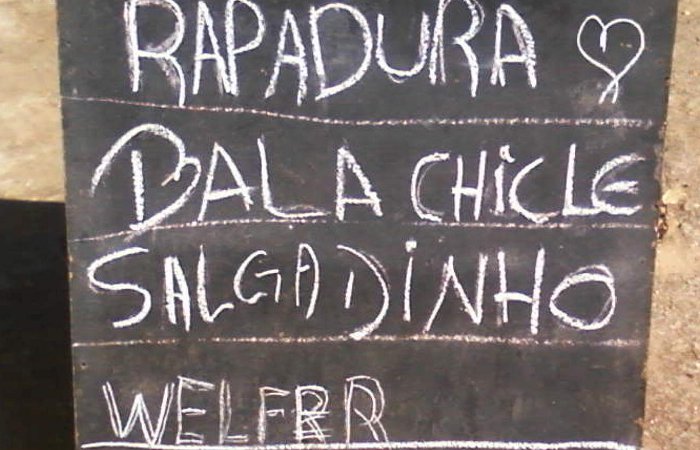 RAPADURA
BALA CHICLE
SALGADINHO
WELFER